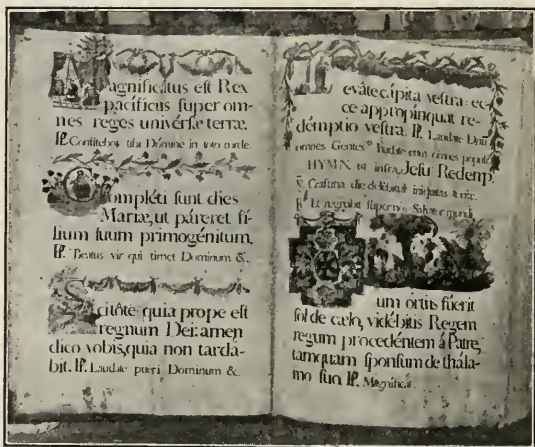 Magnificatus est Rex
pacificus super om-
nes reges univérsæ terræ.
℟. Confitebor tibi Dómine in toto corde.
Compléti sunt dies
Mariæ, ut páreret fi-
lium suum primogénitum.
℟. Beatus vir qui timet Dominum &.
Scitóte quia prope est
regnum Dei: amen
dico vobis, quia non tarda-
bit. ℟. Laudate pueri Dominum &.
Leváte cápita vestra: ec-
ce appropinquat re-
démptio vestra. ℟. Laudate Dnū
omnes Gentes
HYMN. ut infra, Jesu Redemp.
℣. Crastina die delébitur iniquitas terræ.
℟. Et regnabit super nos Salvator mundi.
Cum ortus fúerit
sol de cælo, vidébitis Regem
regum procedéntem á Patre,
tamquam sponsum de thála-
mo suo. ℟. Magnificat.